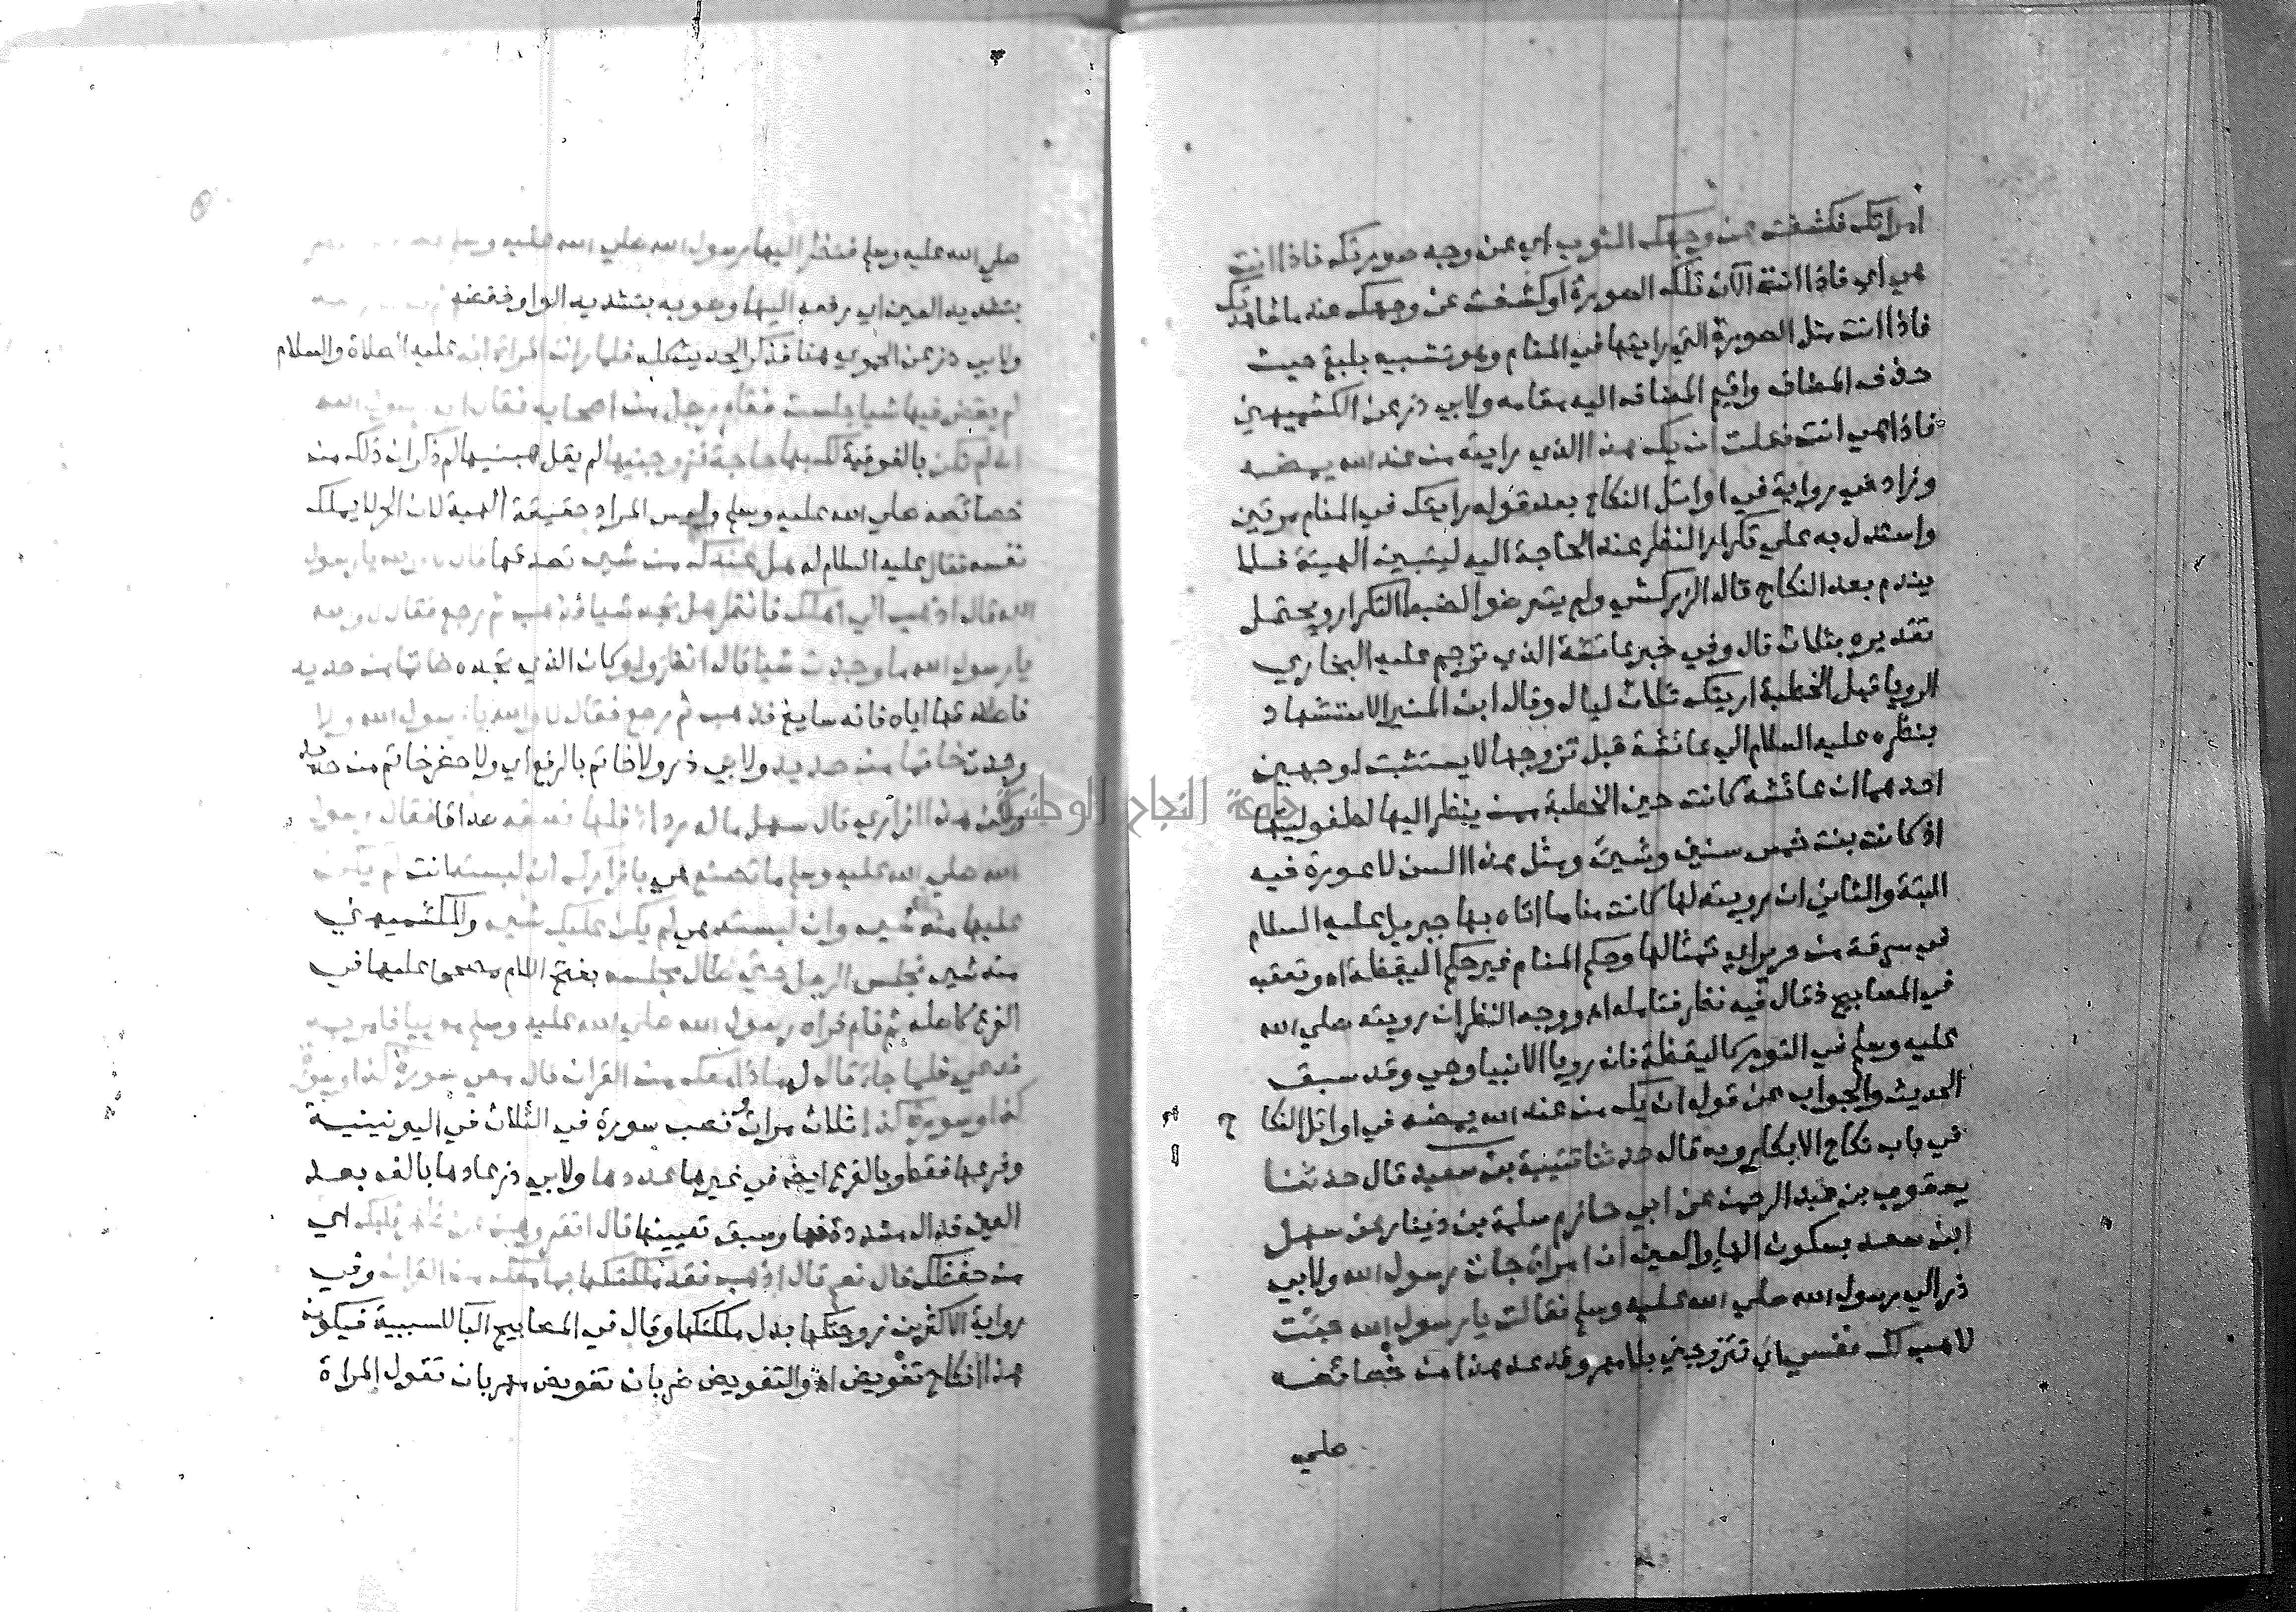 امراتك فكشفت عن وجهك الثوب اي عن وجه صورتك فاذا انت
هي اي فاذا انت الآن تلك الصورة او كشفت عن وجهك عند ما شاهدتك
فاذا انت مثل الصورة التي رايتها في المنام وهو تشبيه بليغ حيث
حذف المضاف واقيم المضاف اليه مقامه ولابي ذر عن الكشميهني
فاذا هي انت فقلت ان يك هذا الذي رايته من عند الله يمضه
وزاد في رواية في اوائل النكاح بعد قوله رايتك في المنام مرتين
واستدل به علي تكرار النظر عند الحاجة اليه ليتبين الهيئة فلا
يندم بعد النكاح قال الزركشي ولم يتعرضوا لضبط التكرار ويحتمل
تقديره بثلاث قال وفي خبر عائشة الذي ترجم عليه البخاري
الرويا قبل الخطبة اريتك ثلاث ليال وقال ابن المنير الاستشهاد
بنظره عليه السلام الي عائشة قبل تزوجها لا يستتب لوجهين
احدهما ان عائشة كانت حين الخطبة ممن ينظر اليها لطفوليتها
اذ كانت بنت خمس سنين وشيء ومثل هذا السن لا عورة فيه
البتة والثاني ان رويته لها كانت مناما اتاه بها جبريل عليه السلام
في سرقة من حرير اي تمثالها وحكم المنام غير حكم اليقظة اه وتعقبه
في المصابيح فقال فيه نظر فتامله اه ووجه النظر ان رويته صلي الله
عليه وسلم في النوم كاليقظة فان رويا الانبيا وحي وقد سبق
الحديث والجواب عن قوله ان يك من عند الله يمضه في اوائل النكاح
في باب نكاح الابكار وبه قال حدثنا قتيبة بن سعيد قال حدثنا
يعقوب بن عبد الرحمن عن ابي حازم سلمة بن دينار عن سهل
ابن سعد بسكون الها والعين ان امراة جات رسول الله ولابي
ذر الي رسول الله صلي الله عليه وسلم فقالت يا رسول الله جئت
لاهب لك نفسي اي تتزوجني بلا مهر وقد عد هذا من خصائصه
صلي
صلي الله عليه وسلم فنظر اليها رسول الله صلي الله عليه وسلم فصعد
بتشديد العين اي رفعه اليها وصوبه بتشديد الواو خفضه
ولابي ذر عن الحموي هنا فذكر الحديث كله فلما رات المراة انه عليه الصلاة والسلام
لم يقض فيها شيا جلست فقام رجل من اصحابه فقال اي رسول الله
ان لم تكن بالفوقية لك بها حاجة فزوجنيها لم يقل هبنيها لم ذكر ان ذلك من
خصائصه صلي الله عليه وسلم وليس المراد حقيقة الهبة لان الحر لا يملك
نفسه فقال عليه السلام له هل عندك من شيء تصدقها قال لا والله يا رسول
الله قال اذهب الي اهلك فانظر هل تجد شيا فذهب ثم رجع فقال لا والله
يا رسول الله ما وجدت شيا قال انظر ولو كان الذي تجده خاتما من حديد
فاصدقها اياه فانه سايغ فذهب ثم رجع فقال لا والله يا رسول الله ولا
وجدت خاتما من حديد ولابي ذر ولا خاتم بالرفع اي ولا حضر خاتم من حديد
ولكن هذا ازاري قال سهل ما له رداء فلها نصفه صداقا فقال رسول
الله صلي الله عليه وسلم ما تصنع هي بازارك ان لبسته انت لم يكن
عليها منه شيء وان لبسته هي لم يكن عليك شيء وللكشميهني
منه شيء فجلس الرجل حتي طال مجلسه بفتح اللام مصححا عليها في
الفرع كاصله ثم قام فراه رسول الله صلي الله عليه وسلم موليا فامر به
فدعي فلما جاء قال له ماذا معك من القران قال معي سورة كذا وسورة
كذا وسورة كذا ثلاث مرات فنصب سورة في الثلاث في اليونينية
وفرعها فقط وبالفرع ايضا في غيرها عددها ولابي ذر عادها بالف بعد
العين فدال مشددة فها وسبق تعيينها قال اتقروهن عن ظهر قلبك اي
من حفظك قال نعم قال اذهب فقد ملكتكها بما معك من القران وفي
رواية الاكثرين زوجتكها بدل ملكتكها وقال في المصابيح البا للسببية فيكون
هذا نكاح تفويض اه والتفويض ضربان تفويض مهر بان تقول المراة
جامعة النجاح الوطنية